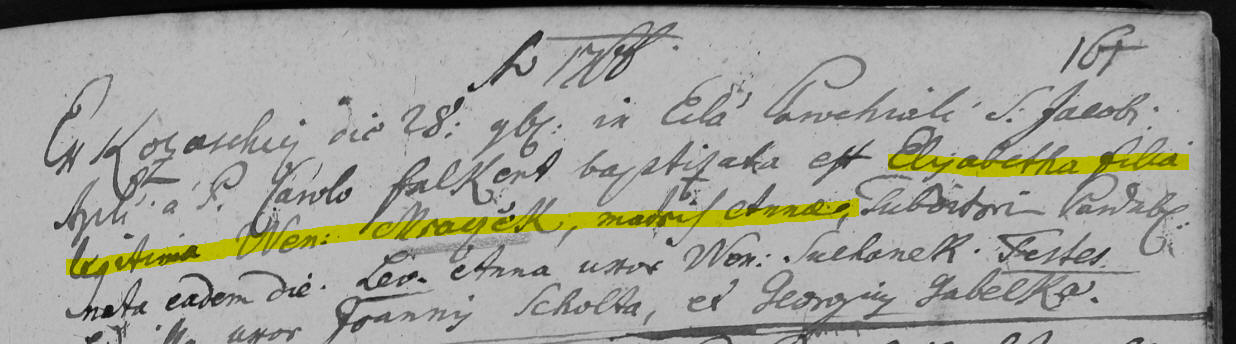 Ao 1768. 161
Ex Kozaschicz die 28. 9br: in Ecla Parochiali S. Jacobi
Apli à P. Carolo Falkent baptizata est Elisabetha filia
legitima Wen: Mraczek, matris Annae, Subditorum Pardub:
nata eadem die. Lev. Anna uxor Wen: Suchanek. Testes
uxor Joannis Scholta, et Georgius Jabelka.